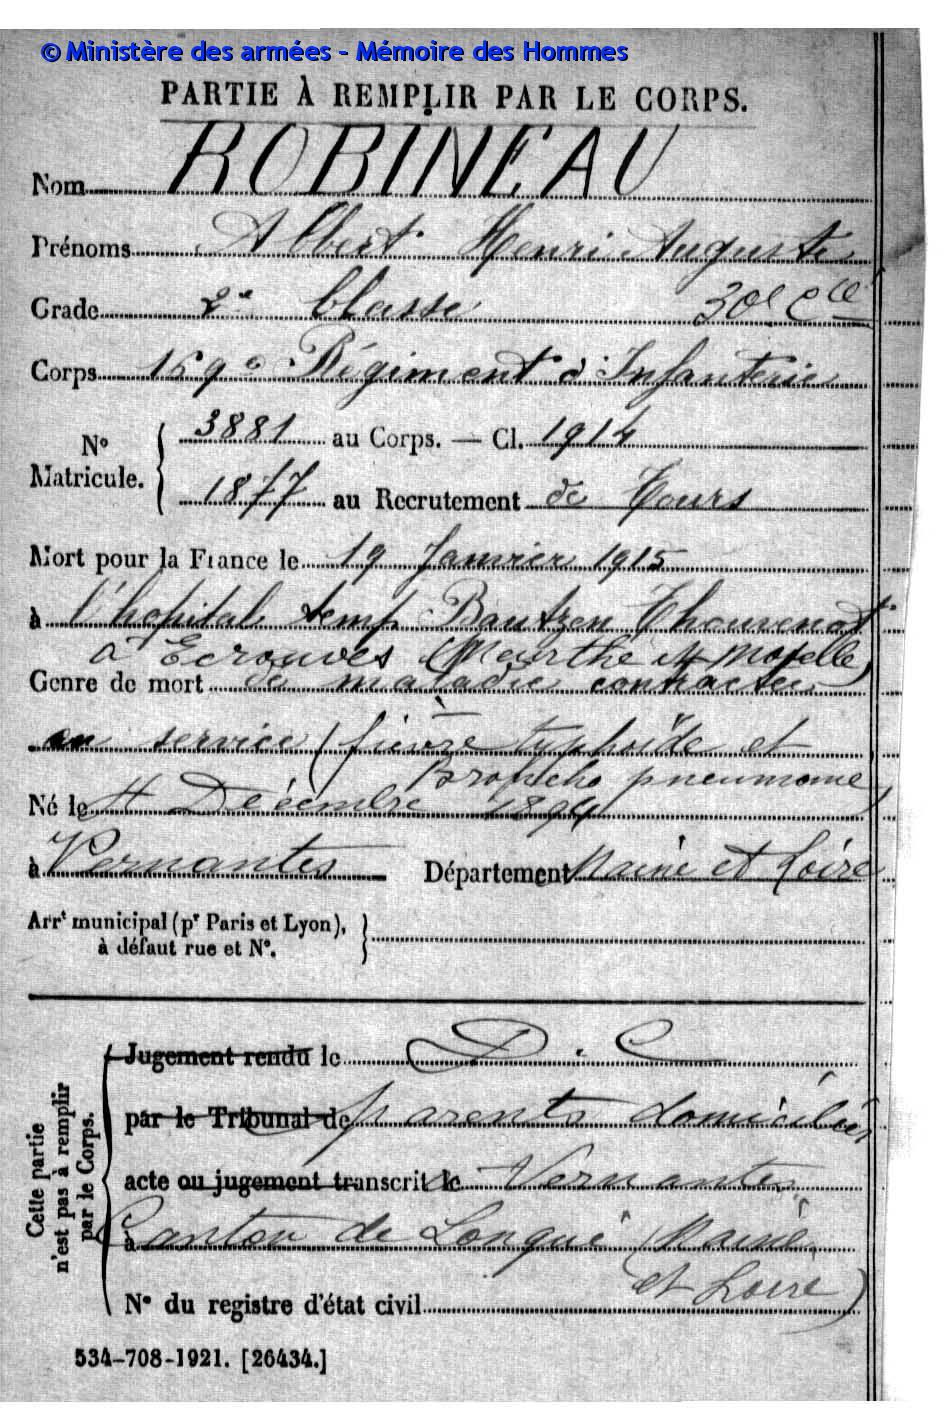 © Ministère des armées - Mémoire des Hommes
PARTIE À REMPLIR PAR LE CORPS.
Nom ROBINEAU
Prénoms Albert Henri Auguste
Grade 2e Classe 30e Cie
Corps 169e Régiment d'Infanterie
N° Matricule. { 3881 au Corps. — Cl. 1914
1877 au Recrutement de Tours
Mort pour la France le 19 Janvier 1915
à l'hopital temp. Bautzen Thouvenot
à Ecrouves (Meurthe et Moselle)
Genre de mort de maladie contractée
en service (fièvre typhoïde et
Broncho pneumonie)
Né le 4 Décembre 1894
à Vernantes Département Maine et Loire
Arrt municipal (pr Paris et Lyon), à défaut rue et N°. }
Cette partie n'est pas à remplir par le Corps.
Jugement rendu le D. C
par le Tribunal de parents domiciliés
acte ou jugement transcrit le à Vernantes
à Canton de Longué (Maine
et Loire)
N° du registre d'état civil
534-708-1921. [26434.]